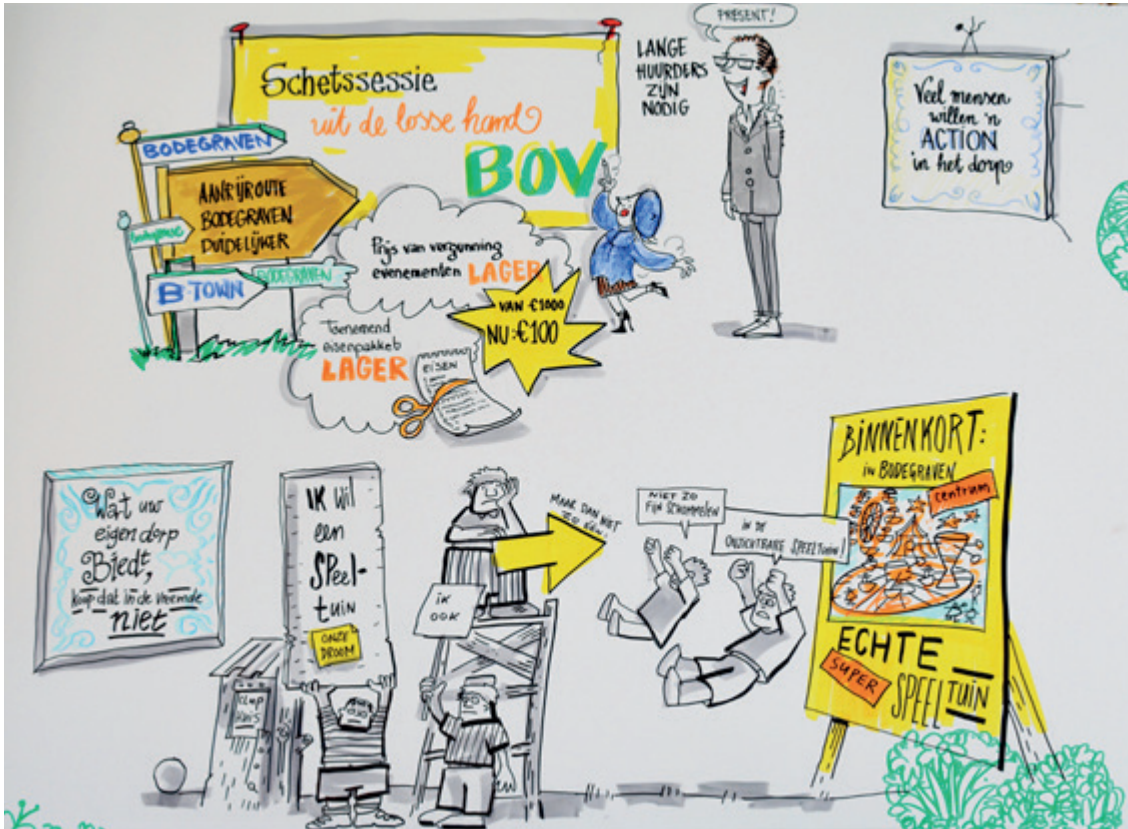 Schetssessie
uit de losse hand
BOV
BODEGRAVEN
AANRIJROUTE
BODEGRAVEN
DUIDELIJKER
BODEGRAVEN
B-TOWN
Prijs van vergunning
evenementen LAGER
VAN €1000
NU:€100
Toenemend
eisenpakket
LAGER
EISEN
PRESENT!
LANGE
HUURDERS
ZIJN
NODIG
Veel mensen
willen 'n
ACTION
in het dorp
Wat uw
eigen dorp
Biedt,
koop dat in de vreemde
niet
IK Wil
een
SPeel-
tuin
ONZE
DROOM
IK
OOK
MAAR DAN NIET
NIET ZO
FIJN SCHOMMELEN
IN DE
ONZICHTBARE SPEELTUIN!
BINNENKORT:
in BODEGRAVEN
centrum
ECHTE
SUPER
SPEELTUIN